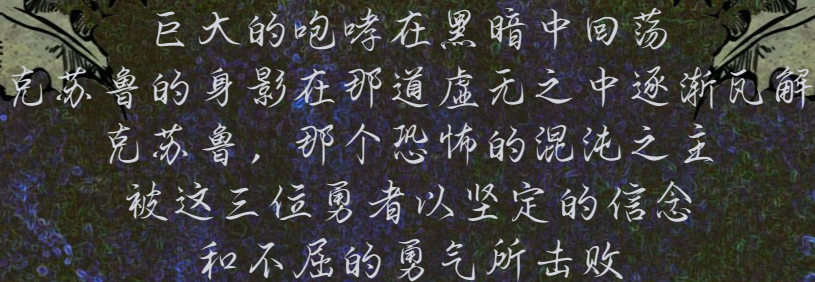 巨大的咆哮在黑暗中回荡
克苏鲁的身影在那道虚无之中逐渐瓦解
克苏鲁，那个恐怖的混沌之主
被这三位勇者以坚定的信念
和不屈的勇气所击败